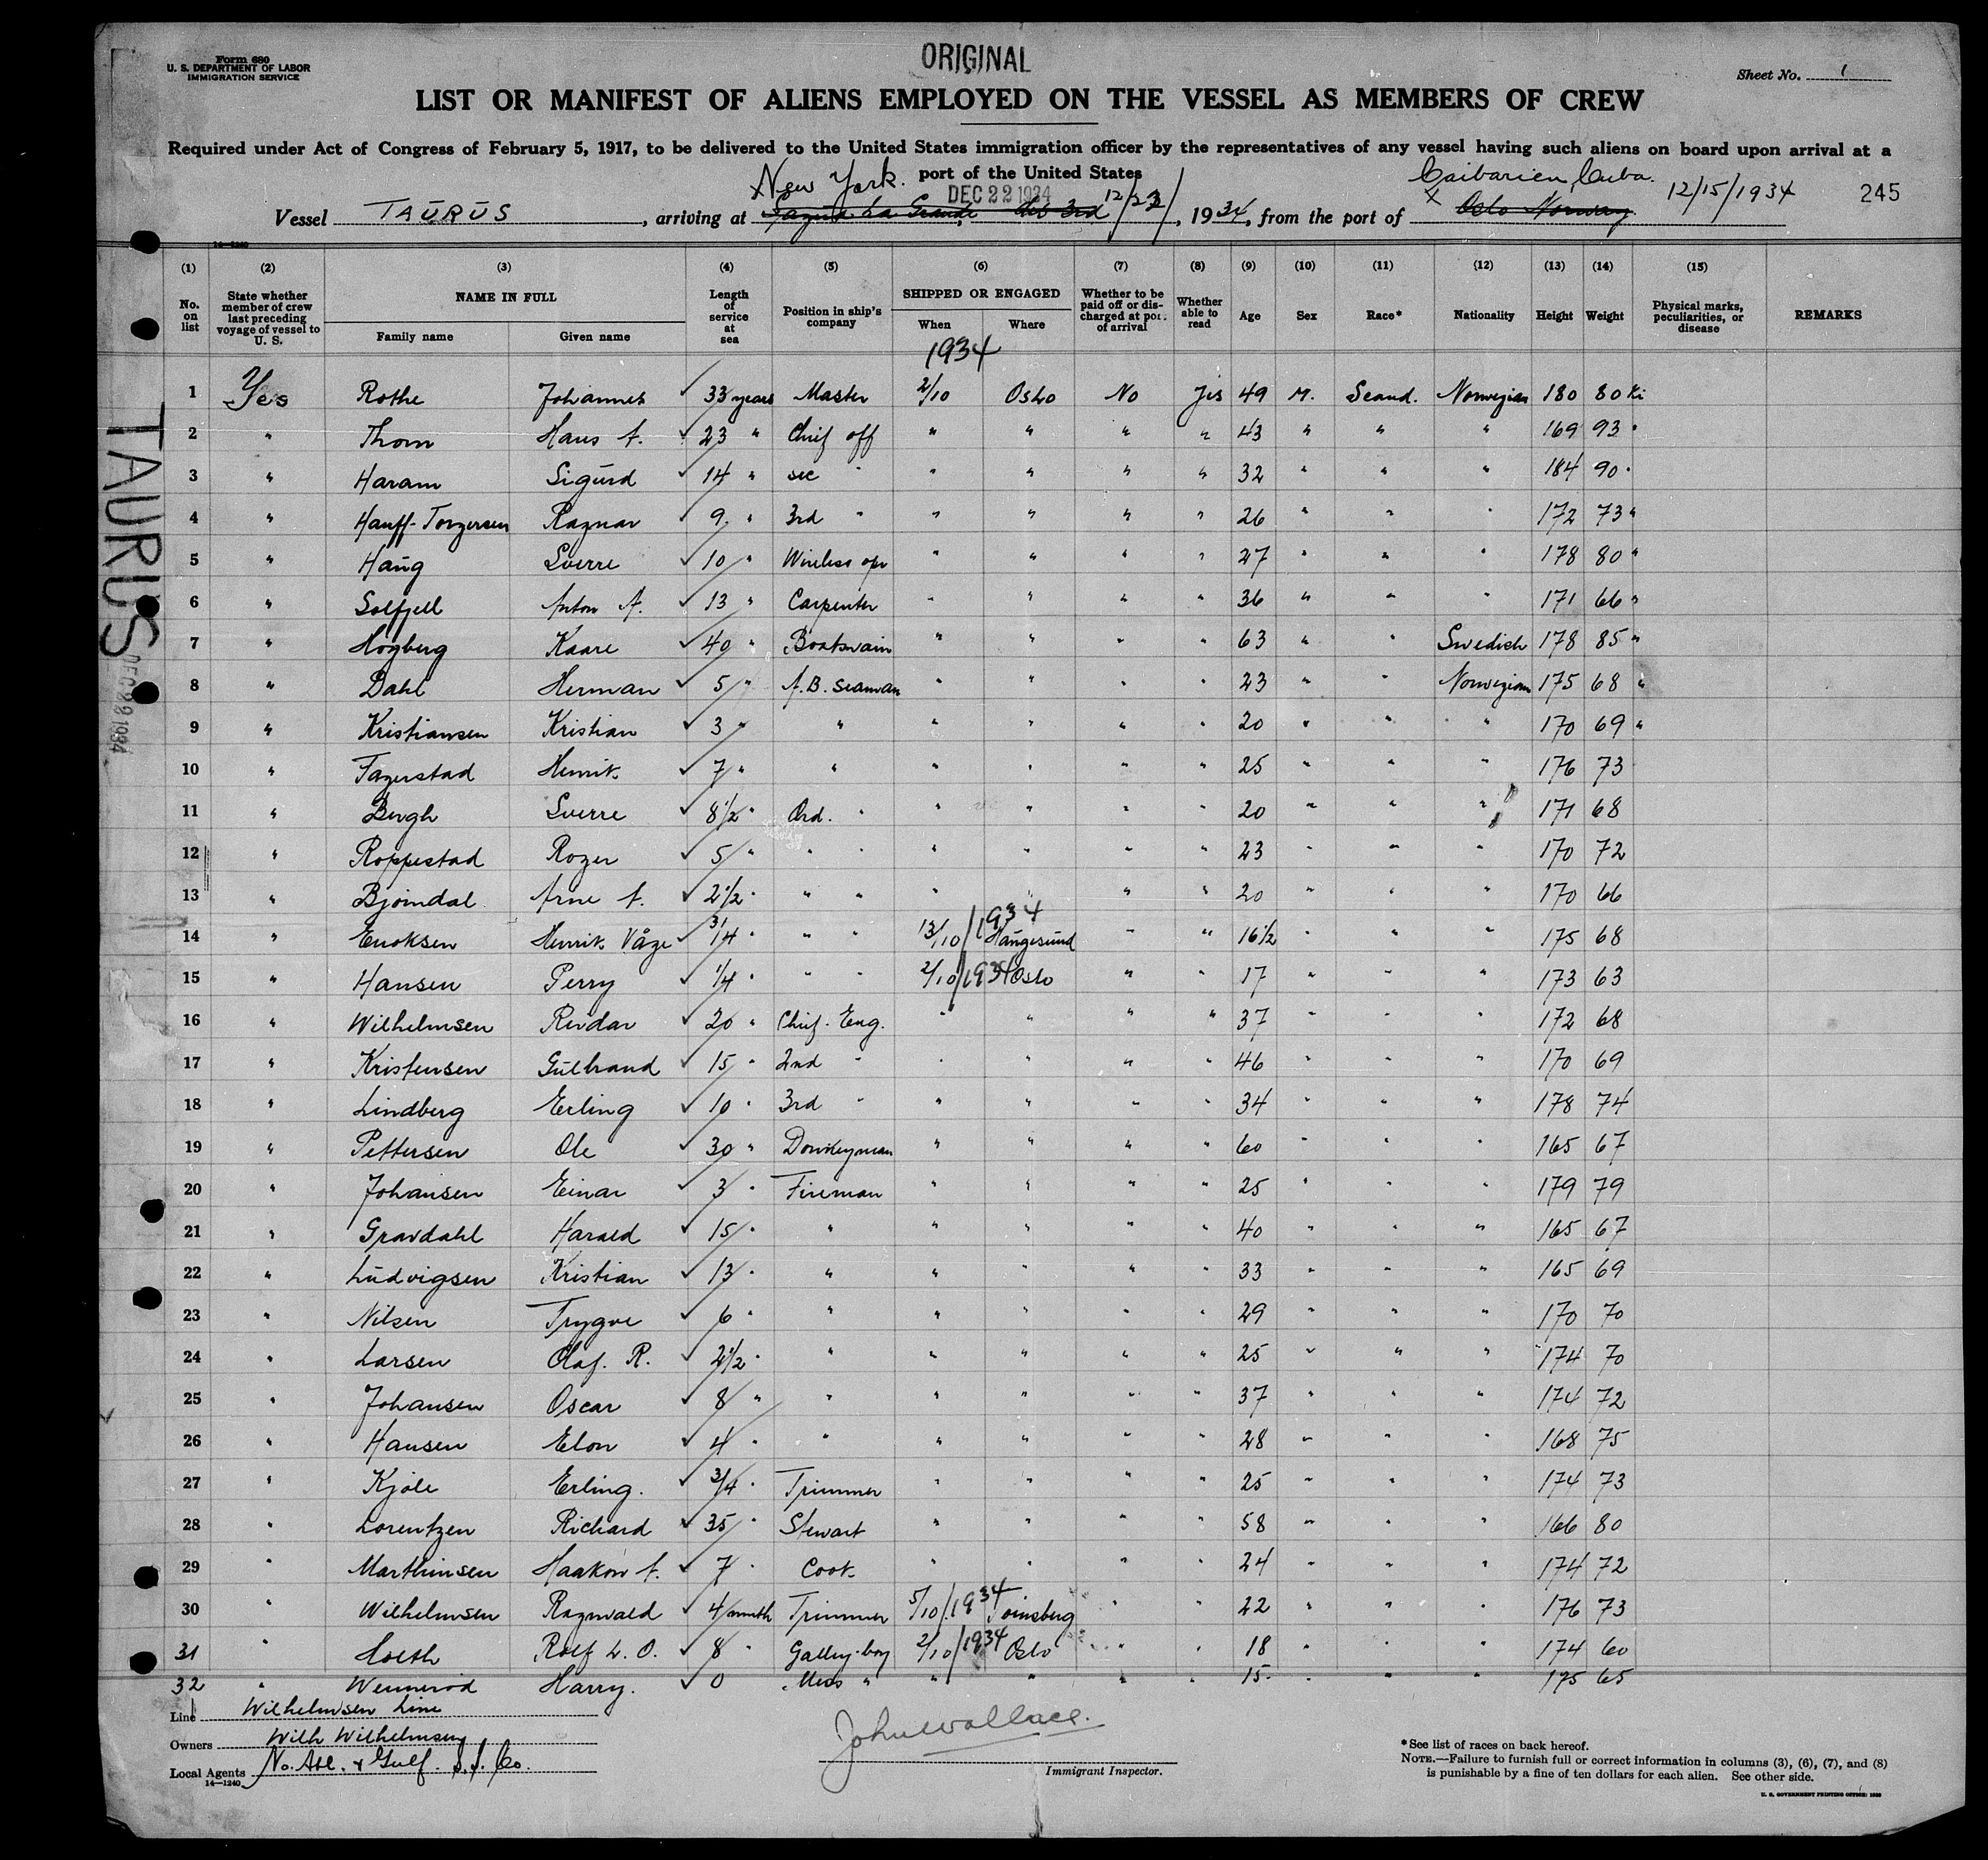 Form 680
U. S. DEPARTMENT OF LABOR
IMMIGRATION SERVICE
ORIGINAL
Sheet No. 1
LIST OR MANIFEST OF ALIENS EMPLOYED ON THE VESSEL AS MEMBERS OF CREW
Required under Act of Congress of February 5, 1917, to be delivered to the United States immigration officer by the representatives of any vessel having such aliens on board upon arrival at a
port of the United States
New York. DEC 22 1934 Caibarien, Cuba. 12/15/1934 245
Vessel TAURUS, arriving at Sagua La Grande 12/22/, 1934, from the port of x Oslo Norway
14—1240
(1) (2) (3) (4) (5) (6) (7) (8) (9) (10) (11) (12) (13) (14) (15)
No. on list State whether member of crew last preceding voyage of vessel to U. S. NAME IN FULL Family name Given name Length of service at sea Position in ship's company SHIPPED OR ENGAGED When Where Whether to be paid off or discharged at port of arrival Whether able to read Age Sex Race* Nationality Height Weight Physical marks, peculiarities, or disease REMARKS
1934
1 Yes Rothe Johannes ✓ 33 years Master 2/10 Oslo No Yes 49 M. Scand. Norwegian 180 80 Ki
2 " Thorn Hans A. ✓ 23 " Chief off " " " " 43 " " " 169 93 "
3 " Haram Sigurd ✓ 14 " sec " " " " " 32 " " " 184 90 "
4 " Hauff-Torgersen Ragnar ✓ 9 " 3rd " " " " " 26 " " " 172 73 "
5 " Haug Sverre ✓ 10 " Wireless opr " " " " 27 " " " 178 80 "
6 " Solfjell Anton A. ✓ 13 " Carpenter " " " " 36 " " " 171 66 "
7 " Hogberg Kaare ✓ 40 " Boatswain " " " " 63 " " Swedish 178 85 "
8 " Dahl Herman ✓ 5 " A.B. seaman " " " " 23 " " Norwegian 175 68 "
9 " Kristiansen Kristian ✓ 3 " " " " " " 20 " " " 170 69 "
10 " Fagerstad Henrik ✓ 7 " " " " " " 25 " " " 176 73
11 " Bergh Sverre ✓ 8 1/2 " Ord. " " " " " 20 " " " 171 68
12 " Roppestad Roger ✓ 5 " " " " " " " 23 " " " 170 72
13 " Bjorndal Arne A. ✓ 2 1/2 " " " " " " 20 " " " 170 66
14 " Enoksen Henrik Våge ✓ 3/4 " " " 13/10/1934 Haugesund " " 16 1/2 " " " 175 68
15 " Hansen Perry ✓ 1/4 " " " 2/10/1934 Oslo " " 17 " " " 173 63
16 " Wilhelmsen Reidar ✓ 20 " Chief. Eng. " " " " 37 " " " 172 68
17 " Kristensen Gulbrand ✓ 15 " 2nd " " " " " 46 " " " 170 69
18 " Lindberg Erling ✓ 10 " 3rd " " " " " 34 " " " 178 74
19 " Pettersen Ole ✓ 30 " Donkeyman " " " " 60 " " " 165 67
20 " Johansen Einar ✓ 3 " Fireman " " " " 25 " " " 179 79
21 " Gravdahl Harald ✓ 15 " " " " " " 40 " " " 165 67
22 " Ludvigsen Kristian ✓ 13 " " " " " " 33 " " " 165 69
23 " Nilsen Trygve ✓ 6 " " " " " " 29 " " " 170 70
24 " Larsen Olaf. R. ✓ 2 1/2 " " " " " " 25 " " " 174 70
25 " Johansen Oscar ✓ 8 " " " " " " 37 " " " 174 72
26 " Hansen Elon ✓ 4 " " " " " " 28 " " " 168 75
27 " Kjole Erling. ✓ 3/4 " Trimmer " " " " 25 " " " 174 73
28 " Lorentzen Richard ✓ 35 " Stewart " " " " 58 " " " 166 80
29 " Marthinsen Haakon A. ✓ 7 " Cook " " " " 24 " " " 174 72
30 " Wilhelmsen Ragnvald ✓ 4/month Trimmer 5/10/1934 Toinsberg " " 22 " " " 176 73
31 " Holth Rolf L. O. ✓ 8 " Galley-boy 2/10/1934 Oslo " " 18 " " " 174 60
32 " Wennerod Harry. ✓ 0 Mess " " " " " 15 " " " 175 65
Line Wilhelmsen Line
Owners Wilh Wilhelmsen
Local Agents No. Atl. & Gulf. S.S. Co.
14—1240
John Wallace.
Immigrant Inspector.
*See list of races on back hereof.
NOTE.—Failure to furnish full or correct information in columns (3), (6), (7), and (8)
is punishable by a fine of ten dollars for each alien. See other side.
U. S. GOVERNMENT PRINTING OFFICE: 1930
TAURUS
DEC 22 1934